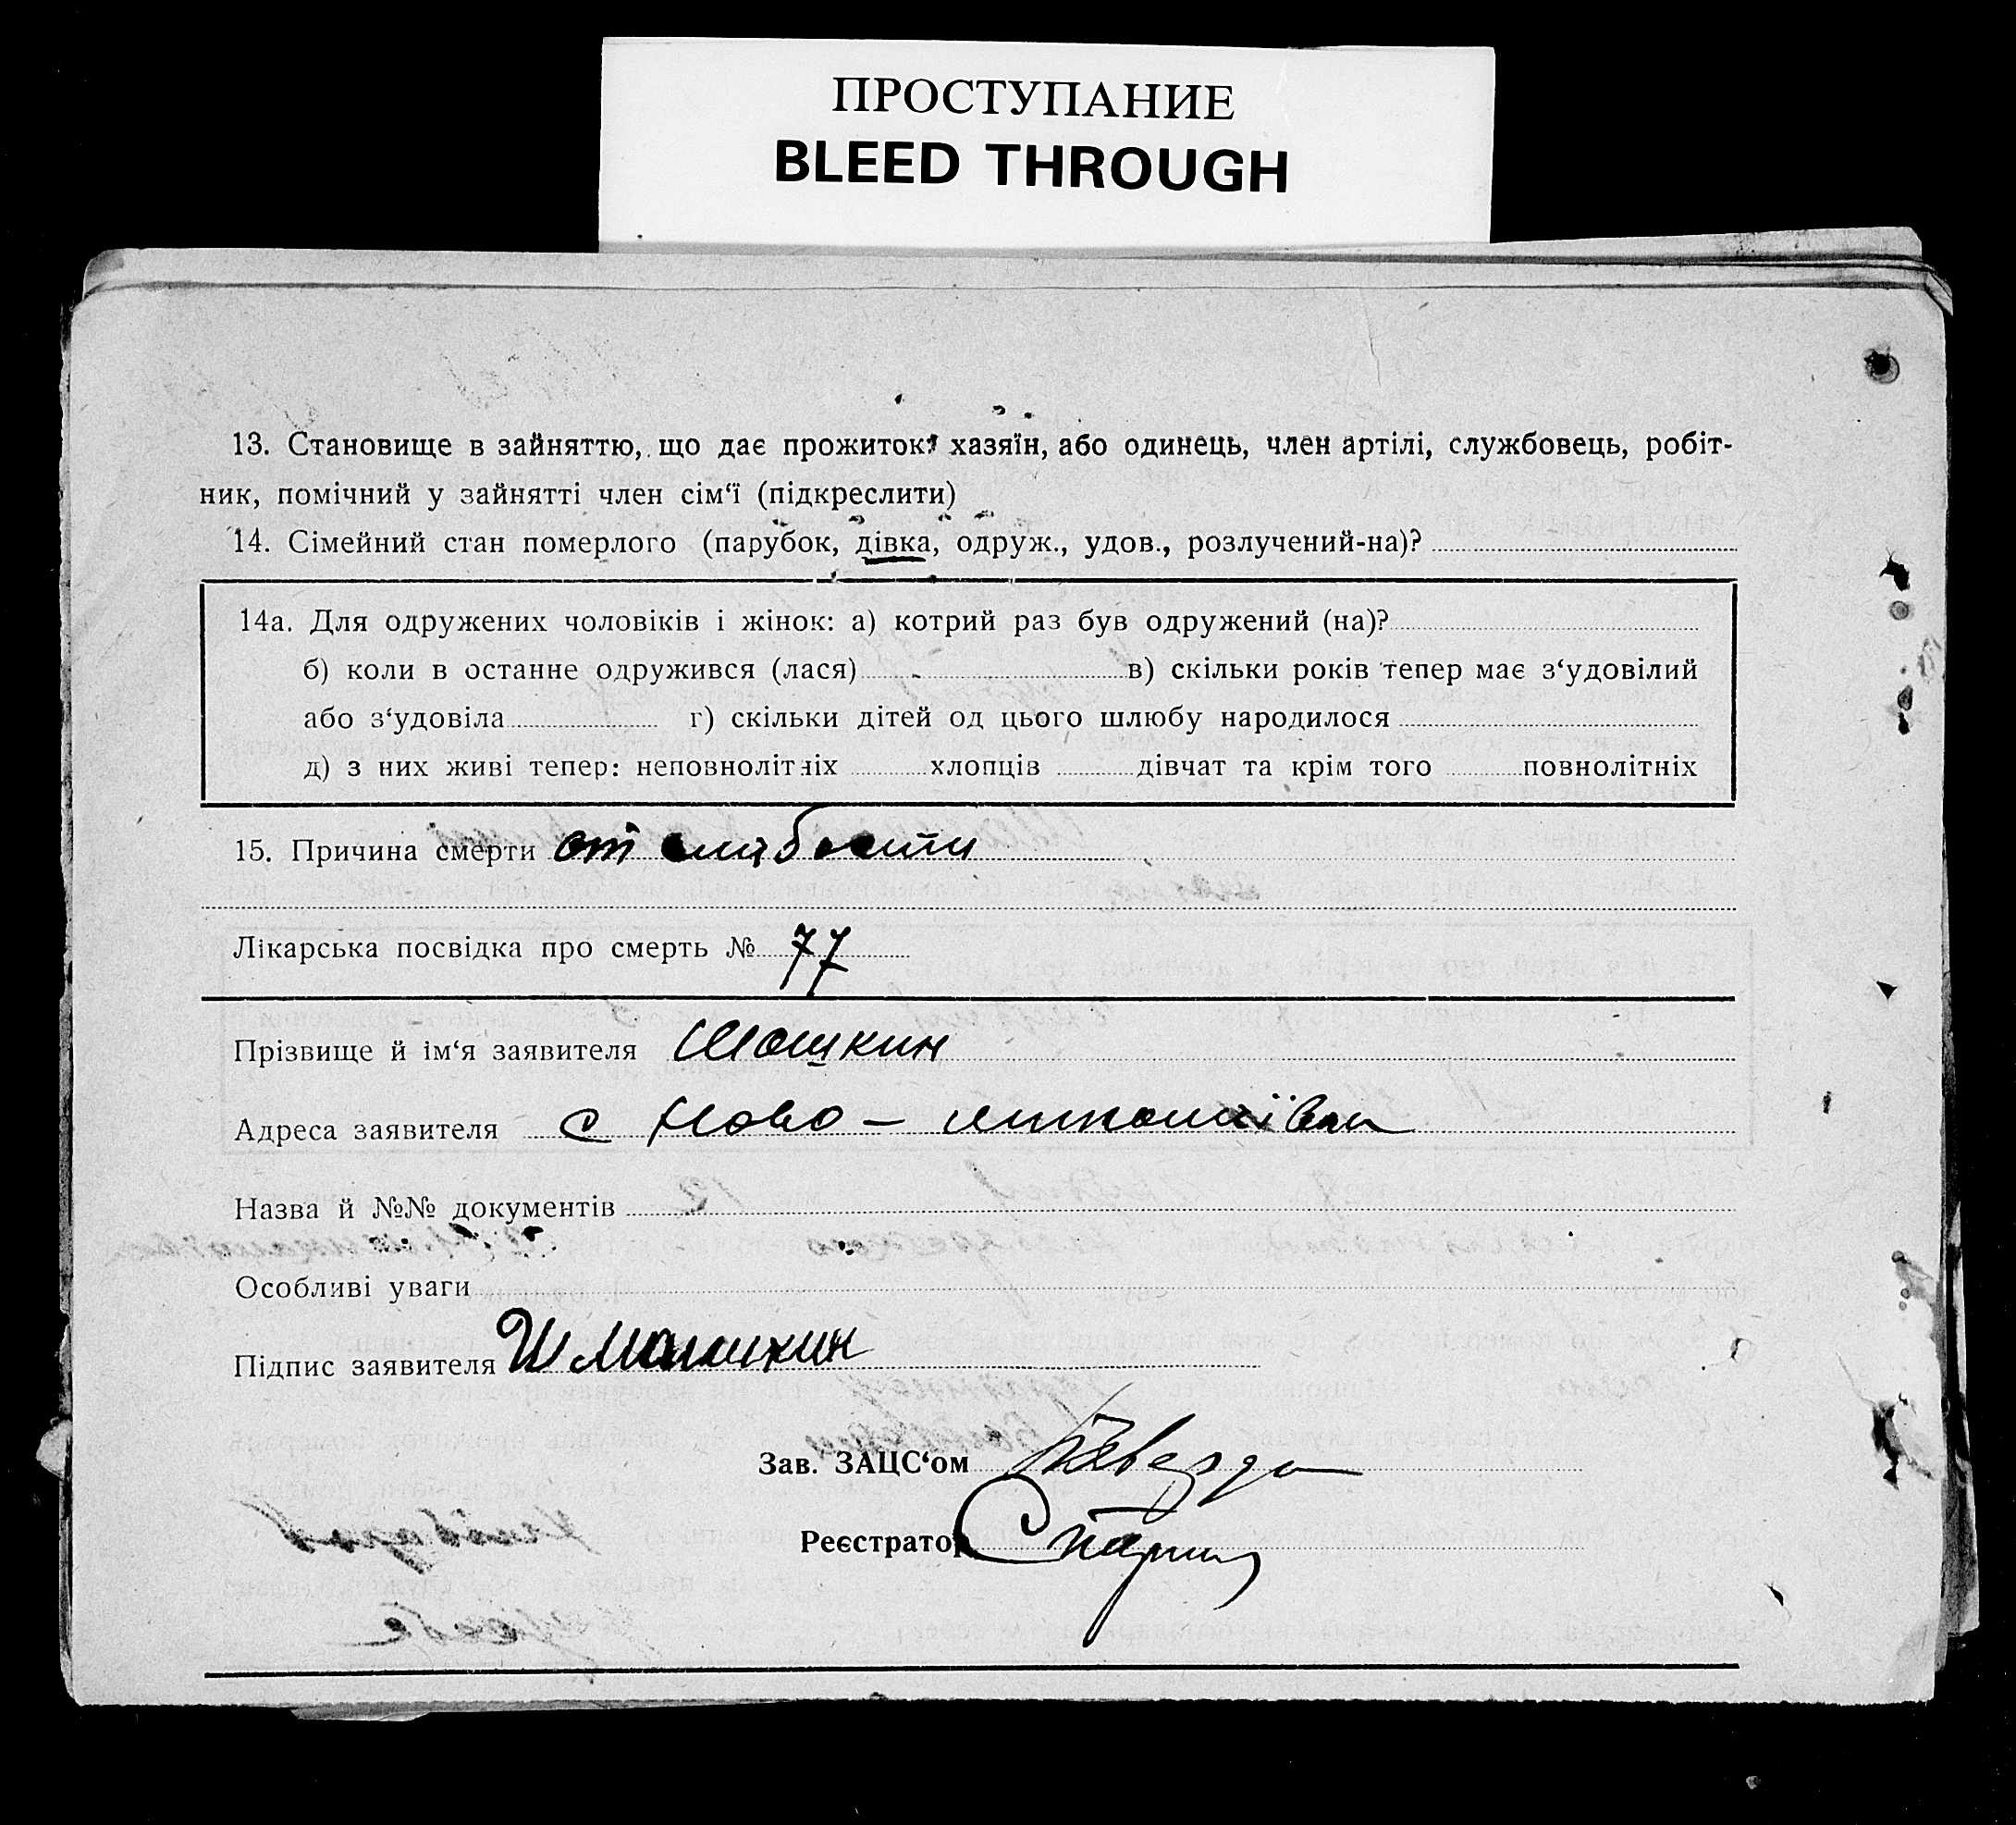 ПРОСТУПАНИЕ
BLEED THROUGH
13. Становище в зайняттю, що дає прожиток: хазяїн, або одинець, член артілі, службовець, робіт-
ник, помічний у зайнятті член сім‘ї (підкреслити)
14. Сімейний стан померлого (парубок, дівка, одруж., удов., розлучений-на)?
14а. Для одружених чоловіків і жінок: а) котрий раз був одружений (на)?
б) коли в останне одружився (лася) в) скільки років тепер має з‘удовілий
або з‘удовіла г) скільки дітей од цього шлюбу народилося
д) з них живі тепер: неповнолітніх хлопців дівчат та крім того повнолітніх
15. Причина смерти от слабости
Лікарська посвідка про смерть № 77
Прізвище й ім‘я заявителя
Адреса заявителя с Ново –
Назва й №№ документів
Особливі уваги
Підпис заявителя
Зав. ЗАЦС‘ом
Реєстратор